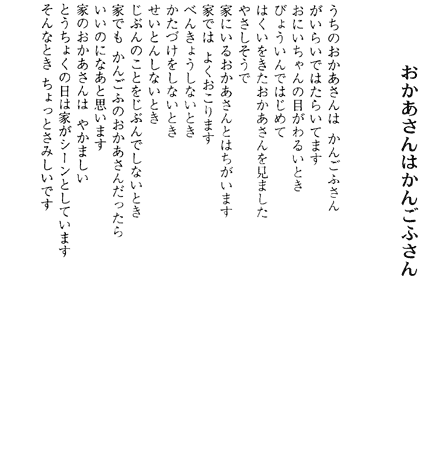 おかあさんはかんごふさん
うちのおかあさんは かんごふさん
がいらいではたらいてます
おにいちゃんの目がわるいとき
びょういんではじめて
はくいをきたおかあさんを見ました
やさしそうで
家にいるおかあさんとはちがいます
家では よくおこります
べんきょうしないとき
かたづけをしないとき
せいとんしないとき
じぶんのことをじぶんでしないとき
家でも かんごふのおかあさんだったら
いいのになあと思います
家のおかあさんは やかましい
とうちょくの日は家がシーンとしています
そんなとき ちょっとさみしいです